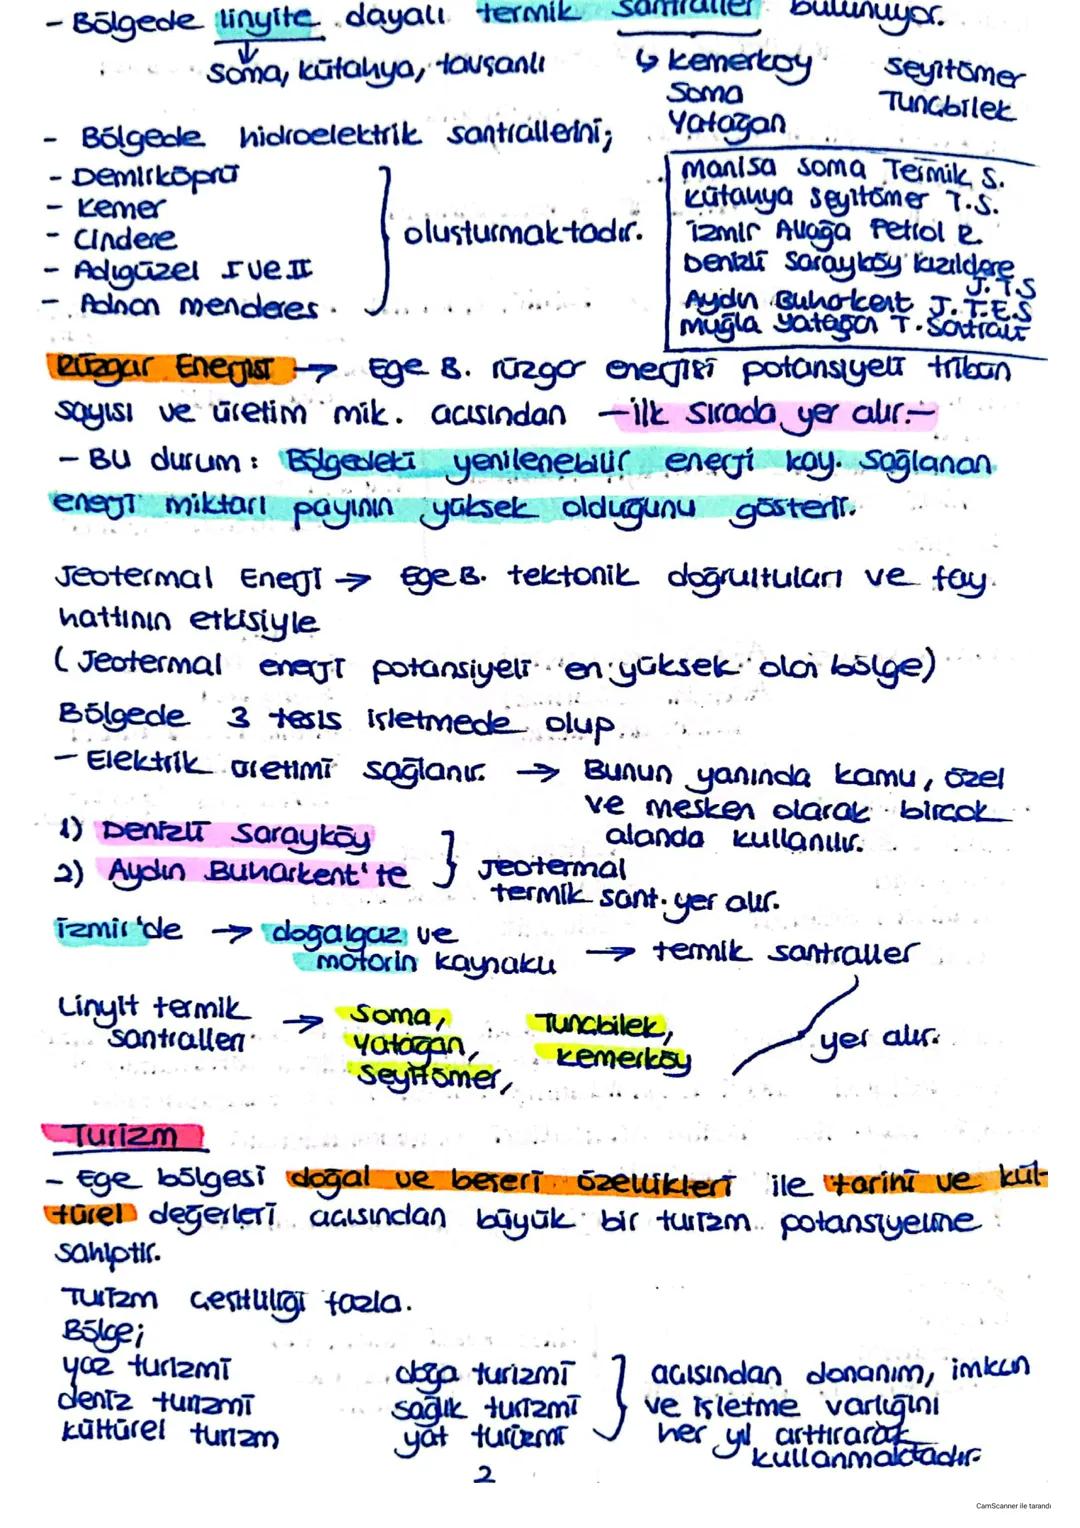 - Bölgede linyite dayalı termik santraller bulunuyor.
Soma, kütahya, tavşanlı
↳ kemerköy seyitömer
Soma Tunçbilek
Yatağan
- Bölgede hidroelektrik santrallerini;
- Demirköprü
- Kemer
- Cindere
- Adıgüzel I ve II
- Adnan menderes
oluşturmaktadır.
manisa soma Termik S.
kütahya seyitömer T.S.
izmir Aliağa Petrol R.
Denizli Sarayköy kızıldere
J.T.S
Aydın Buharkent J.T.E.S
muğla yatağan T. Santrali
Rüzgar Enerjisi → Ege B. rüzgar enerjisi potansiyeli tribün
sayısı ve üretim mik. açısından -ilk sırada yer alır.-
- BU durum: Bölgedeki yenilenebilir enerji kay. sağlanan
enerji miktarı payının yüksek olduğunu gösterir.
Jeotermal Enerji → Ege B. tektonik doğrultuları ve fay
hattının etkisiyle
( Jeotermal enerji potansiyeli en yüksek olan bölge)
Bölgede 3 tesis işletmede olup
- Elektrik üretimi sağlanır. → Bunun yanında kamu, özel
ve mesken olarak birçok
alanda kullanılır.
1) Denizli Sarayköy
2) Aydın Buharkent'te
Jeotermal
termik sant. yer alır.
izmir'de → doğalgaz ve
motorin kaynaku → termik santraller
Linyit termik
santralleri → Soma, Tunçbilek,
Yatağan, kemerköy
Seyitömer,
yer alır.
Turizm
- Ege bölgesi doğal ve beşeri özellikleri ile tarihi ve kül-
türel değerleri açısından büyük bir turizm potansiyeline
sahiptir.
Turizm çeşitliliği fazla.
Bölge;
yaz turizmi doğa turizmi
deniz turizmi sağlık turizmi
kültürel turizm yat turizmi
açısından donanım, imkan
ve işletme varlığını
her yıl arttırarak
kullanmaktadır.
2
CamScanner ile tarandı